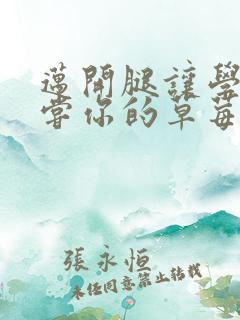 邁開腿讓學
嘗你的草莓
張永恒
未任同意禁止转载